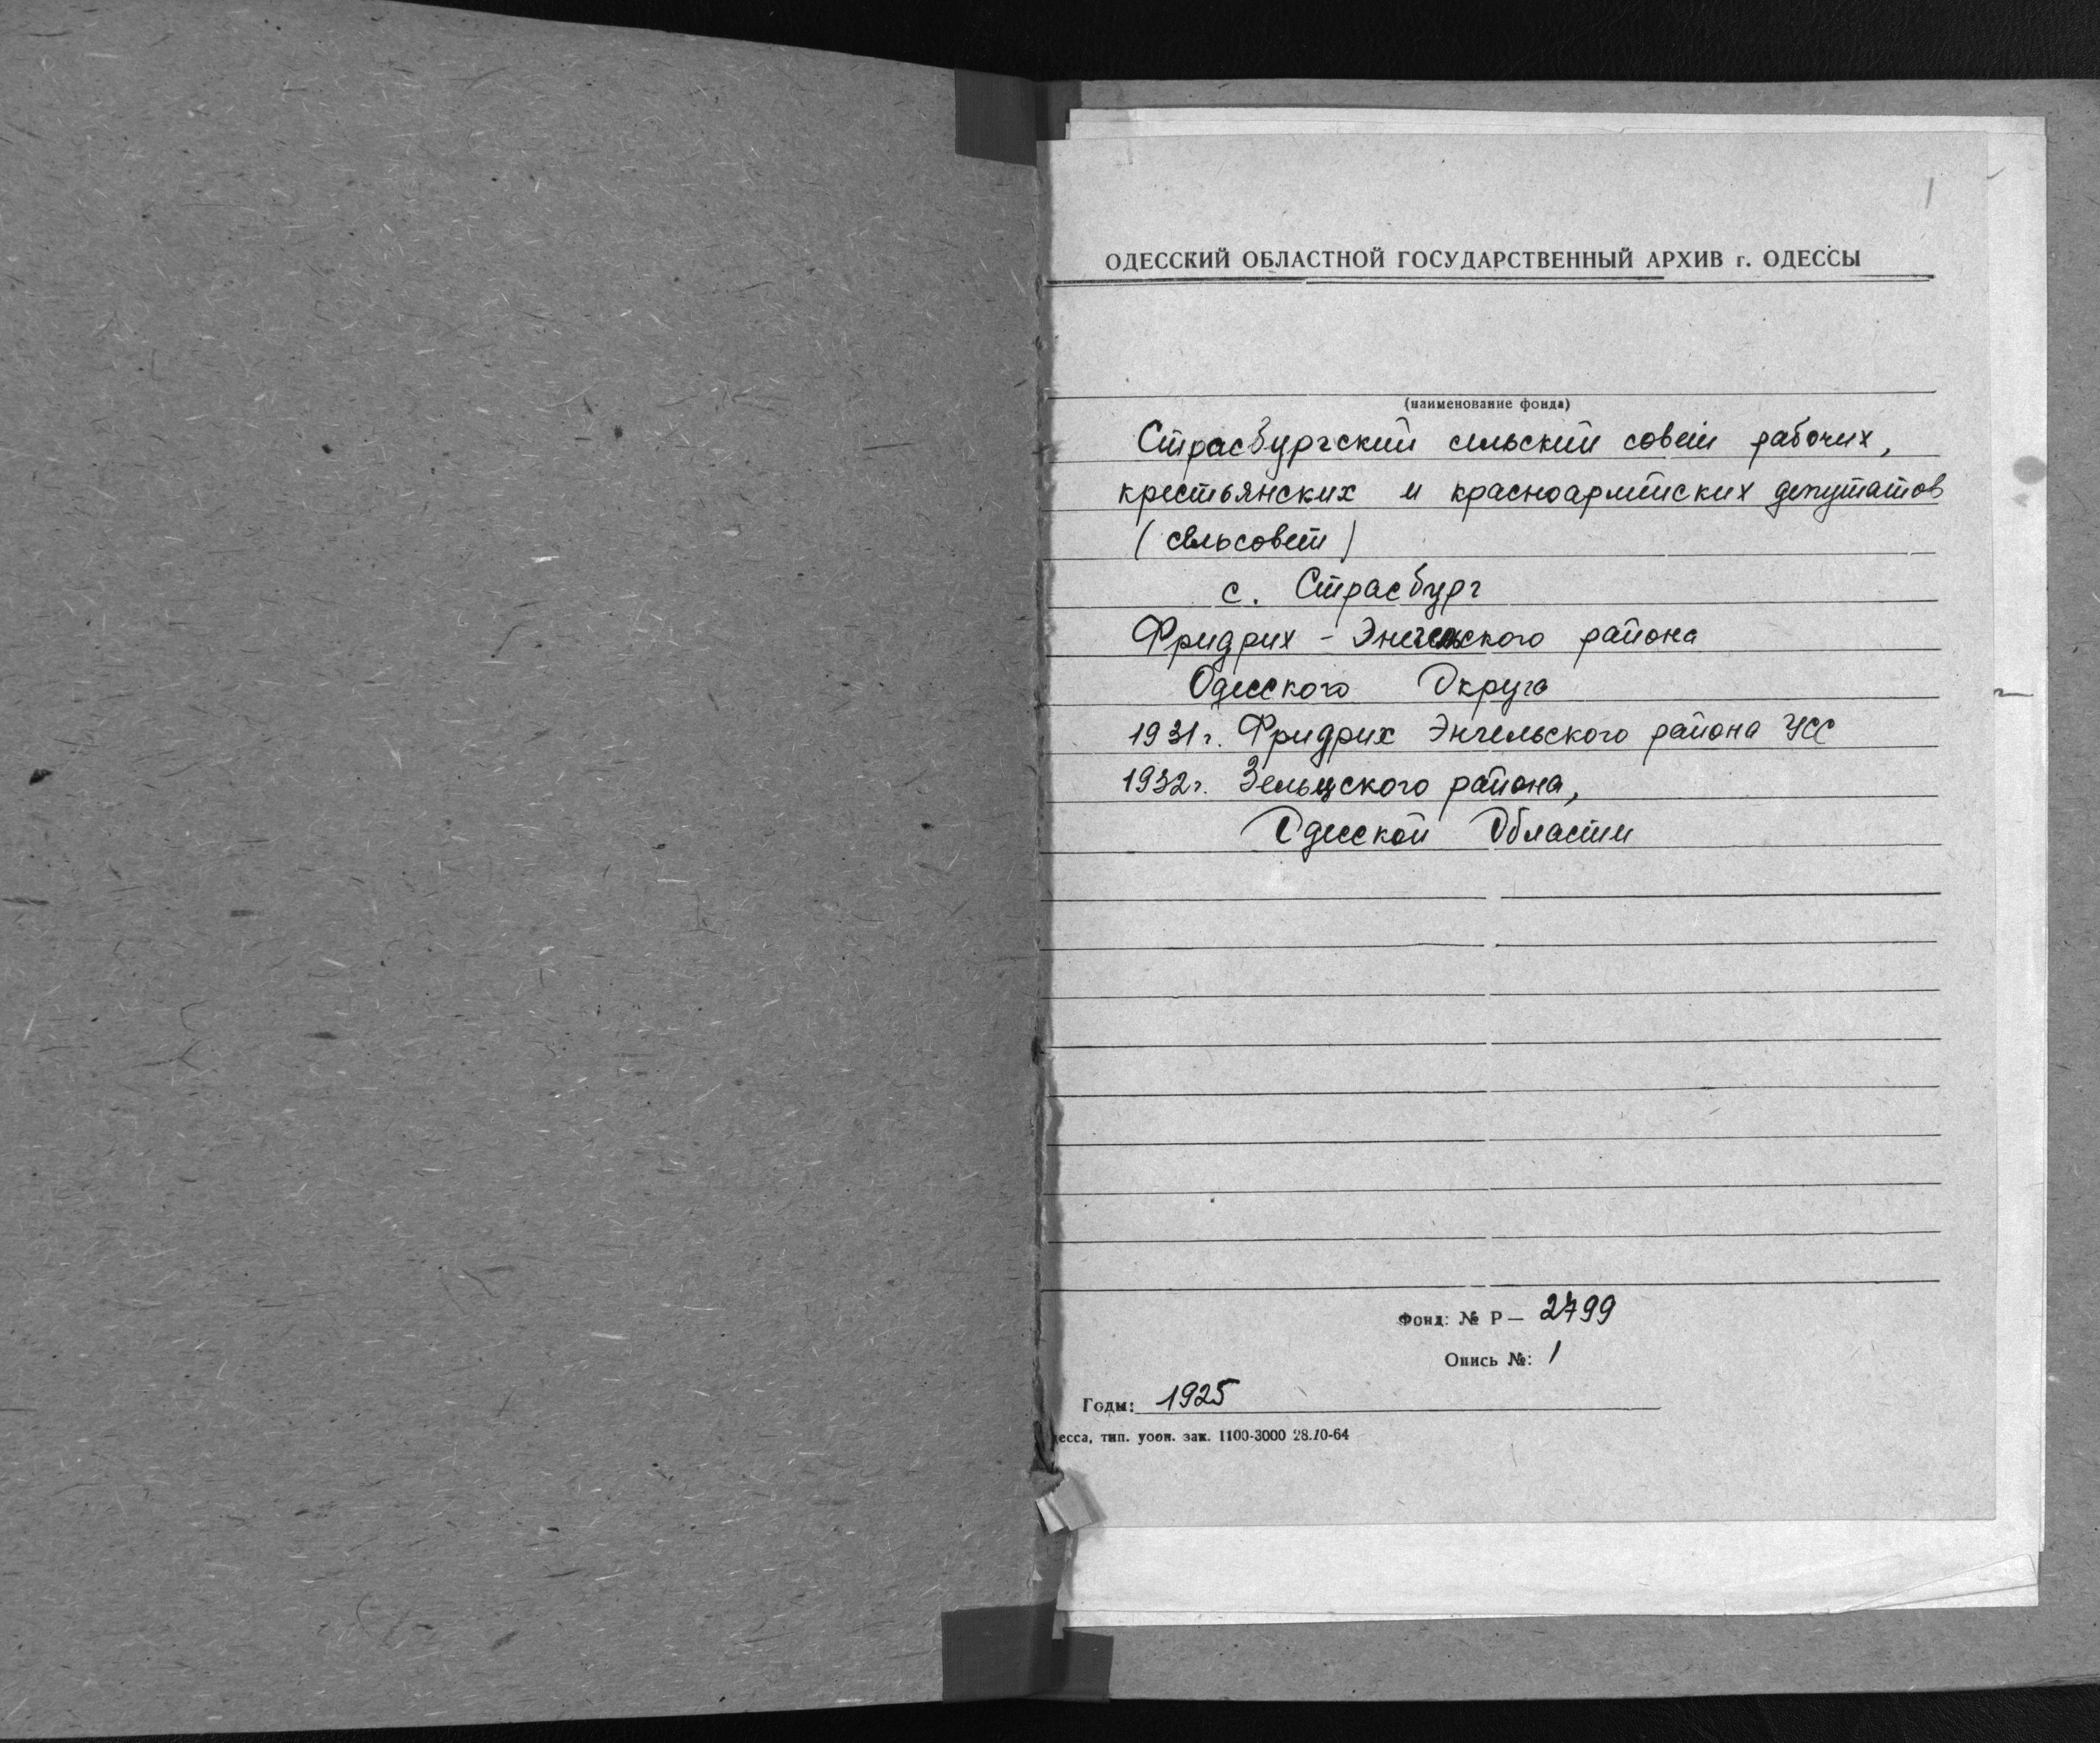 1
ОДЕССКИЙ ОБЛАСТНОЙ ГОСУДАРСТВЕННЫЙ АРХИВ г. ОДЕССЫ
(наименование фонда)
Страсбургский сельский совет рабочих,
крестьянских и красноармейских депутатов
(сельсовет)
с. Страсбург
Фридрих - Энгельского района
Одесского Округа
1931г. Фридрих Энгельского района УСС
1932г. Зельцского района,
Одесской Области
Фонд: № Р— 2799
Опись №: 1
Годы: 1925
десса, тип. уоон. зак. 1100-3000 28.10-64